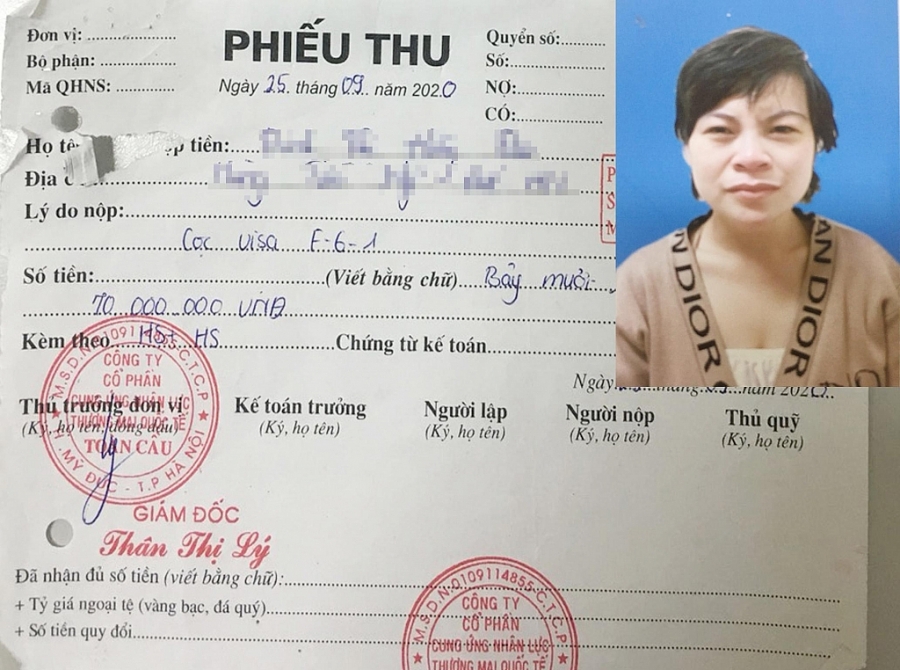 Đơn vị:
PHIẾU THU
Quyển số:
Bộ phận:
Số:
Mã QHNS:
Ngày 25 tháng 09 năm 2020
NỢ:
CÓ:
Họ tê
ộp tiền:
Địa c
Lý do nộp:
Cọc visa F-6-1
Số tiền: (Viết bằng chữ) Bảy mươi
70.000.000 VNĐ
Kèm theo Chứng từ kế toán
HS
M.S.D.N:0109114855-C.T.C.P
CÔNG TY
CỔ PHẦN
CUNG ỨNG NHÂN LỰC
THƯƠNG MẠI QUỐC TẾ
TOÀN CẦU
H. MỸ ĐỨC - T.P HÀ NỘI
Ngày tháng năm 2020
Thủ trưởng đơn vị
(Ký, họ tên, đóng dấu)
Kế toán trưởng
(Ký, họ tên)
Người lập
(Ký, họ tên)
Người nộp
(Ký, họ tên)
Thủ quỹ
(Ký, họ tên)
GIÁM ĐỐC
Thân Thị Lý
Đã nhận đủ số tiền (viết bằng chữ):
+ Tỷ giá ngoại tệ (vàng bạc, đá quý)
+ Số tiền quy đổi
M.S.D.N:0109114855-C.T.C.P
CÔNG TY
CỔ PHẦN
CUNG ỨNG NHÂN LỰC
THƯƠNG MẠI QUỐC TẾ
DIOR
AN DIOR